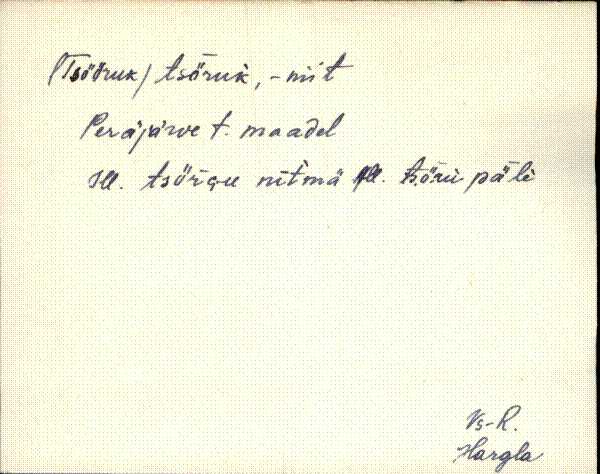 (Tsõõruk) tsõruk, -niit
Peräjärve t. maadel
Ill. tsõrgu nitmä All. tsõrii päle
Vs-R.
Hargla